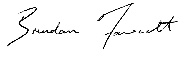 Brendan Fawcett